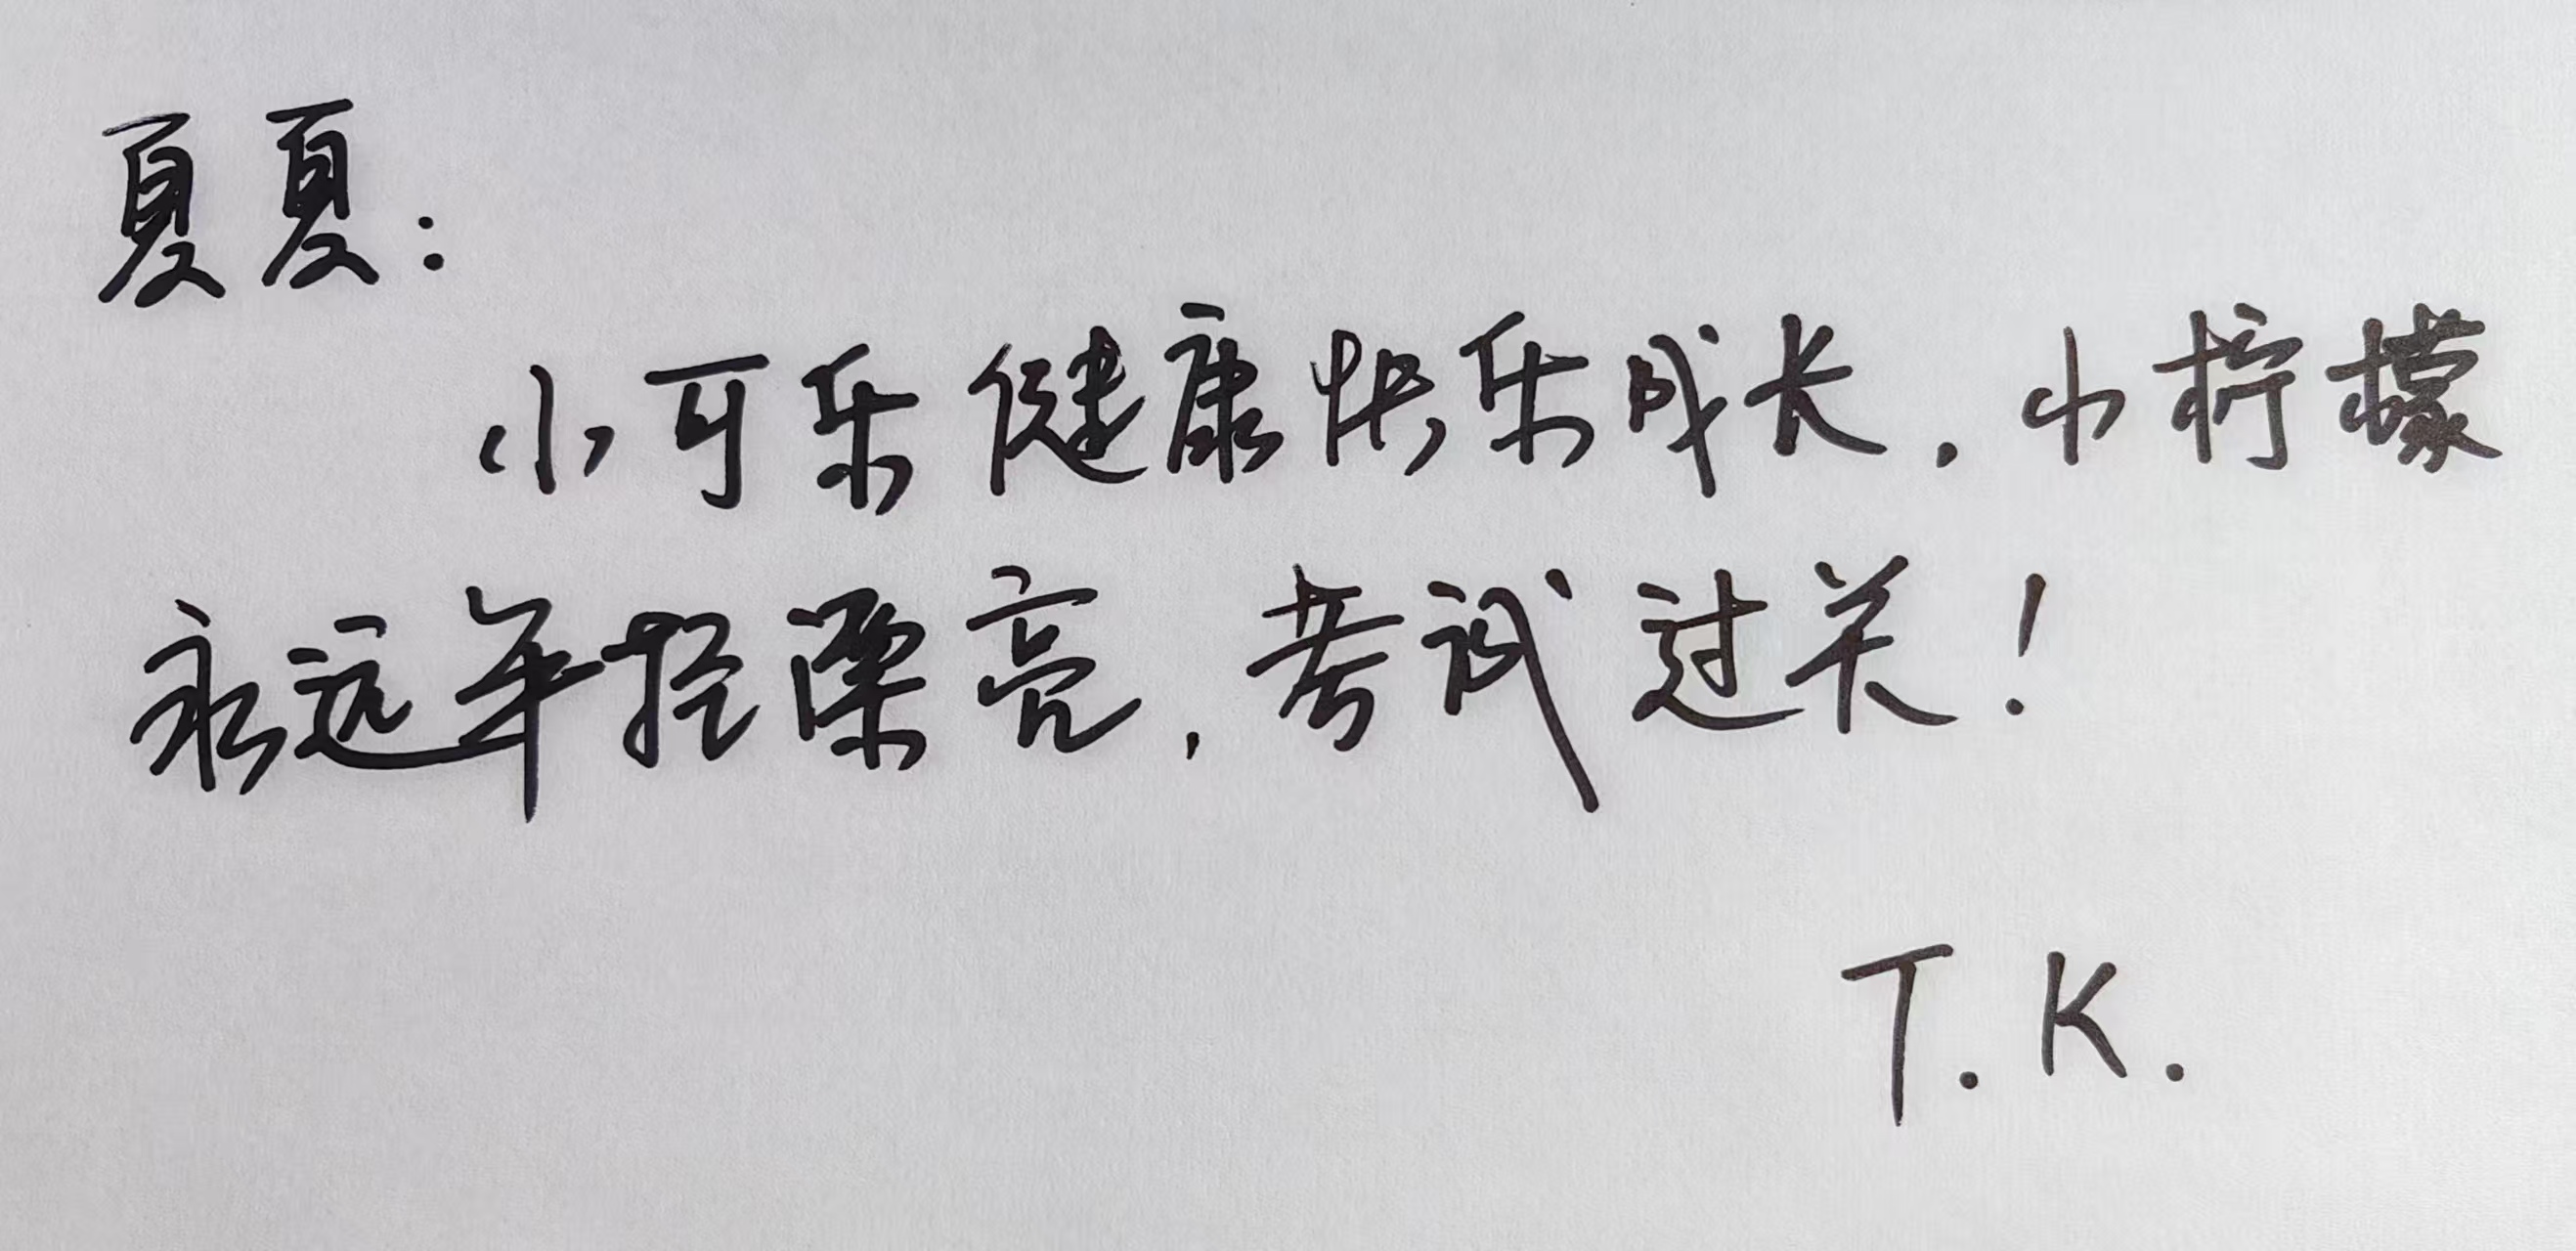 夏夏：
小可乐健康快乐成长，小柠檬
永远年轻漂亮，考试过关！
T.K.